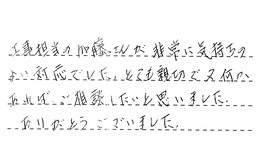 工事担当の加藤さんが非常に気持ちの
よい対応でした。とても親切で又何か
あればご相談したいと思いました。
ありがとうございました。